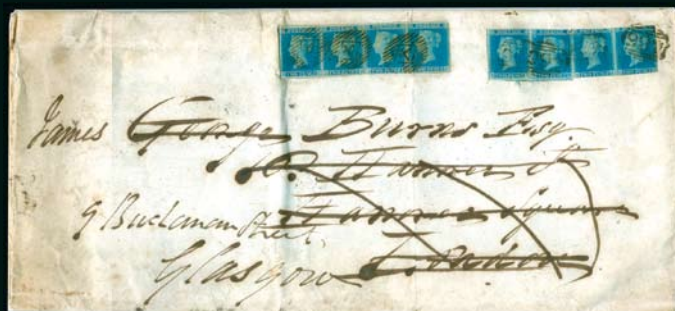 James George Burns Esq
Hanover St
9 Buchanan Street Hanover Square
Glasgow London